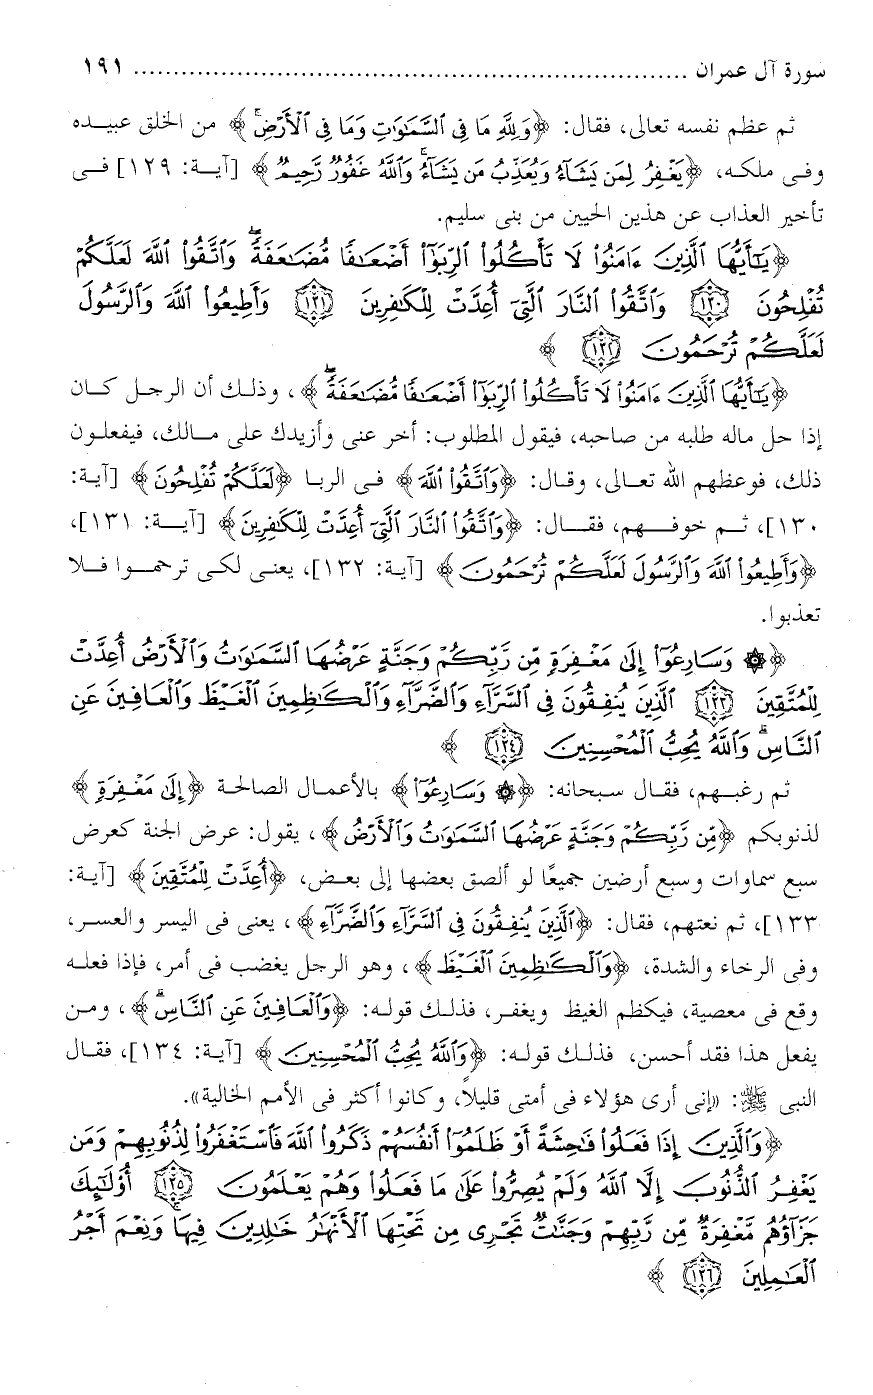 سورة آل عمران ........................................................................ ١٩١
ثم عظم نفسه تعالى، فقال: ﴿وَلِلَّهِ مَا فِى ٱلسَّمَٰوَٰتِ وَمَا فِى ٱلْأَرْضِۚ﴾ من الخلق عبيـده
وفـى ملكـه، ﴿يَغْفِرُ لِمَن يَشَآءُ وَيُعَذِّبُ مَن يَشَآءُۚ وَٱللَّهُ غَفُورٌ رَّحِيمٌ﴾ [آيـة: ١٢٩] فـى
تأخير العذاب عن هذين الحيين من بنى سليم.
﴿يَٰٓأَيُّهَا ٱلَّذِينَ ءَامَنُوا۟ لَا تَأْكُلُوا۟ ٱلرِّبَوٰٓا۟ أَضْعَٰفًا مُّضَٰعَفَةًۖ وَٱتَّقُوا۟ ٱللَّهَ لَعَلَّكُمْ
تُفْلِحُونَ ١٣٠ وَٱتَّقُوا۟ ٱلنَّارَ ٱلَّتِىٓ أُعِدَّتْ لِلْكَٰفِرِينَ ١٣١ وَأَطِيعُوا۟ ٱللَّهَ وَٱلرَّسُولَ
لَعَلَّكُمْ تُرْحَمُونَ ١٣٢ ﴾
﴿يَٰٓأَيُّهَا ٱلَّذِينَ ءَامَنُوا۟ لَا تَأْكُلُوا۟ ٱلرِّبَوٰٓا۟ أَضْعَٰفًا مُّضَٰعَفَةًۖ﴾، وذلـك أن الرجـل كـان
إذا حل ماله طلبه من صاحبه، فيقول المطلوب: أخر عنى وأزيدك على مـالك، فيفعلـون
ذلك، فوعظهم الله تعـالى، وقـال: ﴿وَٱتَّقُوا۟ ٱللَّهَ﴾ فـى الربـا ﴿لَعَلَّكُمْ تُفْلِحُونَ﴾ [آيـة:
١٣٠]، ثـم خوفـهم، فقـال: ﴿وَٱتَّقُوا۟ ٱلنَّارَ ٱلَّتِىٓ أُعِدَّتْ لِلْكَٰفِرِينَ﴾ [آيـة: ١٣١]،
﴿وَأَطِيعُوا۟ ٱللَّهَ وَٱلرَّسُولَ لَعَلَّكُمْ تُرْحَمُونَ﴾ [آية: ١٣٢]، يعنـى لكـى ترحمـوا فـلا
تعذبوا.
﴿۞ وَسَارِعُوٓا۟ إِلَىٰ مَغْفِرَةٍ مِّن رَّبِّكُمْ وَجَنَّةٍ عَرْضُهَا ٱلسَّمَٰوَٰتُ وَٱلْأَرْضُ أُعِدَّتْ
لِلْمُتَّقِينَ ١٣٣ ٱلَّذِينَ يُنفِقُونَ فِى ٱلسَّرَّآءِ وَٱلضَّرَّآءِ وَٱلْكَٰظِمِينَ ٱلْغَيْظَ وَٱلْعَافِينَ عَنِ
ٱلنَّاسِۗ وَٱللَّهُ يُحِبُّ ٱلْمُحْسِنِينَ ١٣٤ ﴾
ثم رغبـهم، فقـال سـبحانه: ﴿۞ وَسَارِعُوٓا۟﴾ بالأعمـال الصالحـة ﴿إِلَىٰ مَغْفِرَةٍ﴾
لذنوبكم ﴿مِّن رَّبِّكُمْ وَجَنَّةٍ عَرْضُهَا ٱلسَّمَٰوَٰتُ وَٱلْأَرْضُ﴾، يقول: عرض الجنة كعرض
سبع سماوات وسبع أرضين جميعًا لو ألصق بعضها إلى بعـض، ﴿أُعِدَّتْ لِلْمُتَّقِينَ﴾ [آيـة:
١٣٣]، ثم نعتهم، فقال: ﴿ٱلَّذِينَ يُنفِقُونَ فِى ٱلسَّرَّآءِ وَٱلضَّرَّآءِ﴾، يعنى فى اليسر والعسـر،
وفى الرخاء والشدة، ﴿وَٱلْكَٰظِمِينَ ٱلْغَيْظَ﴾، وهو الرجل يغضب فى أمر، فإذا فعلـه
وقع فى معصية، فيكظم الغيظ ويغفر، فذلـك قولـه: ﴿وَٱلْعَافِينَ عَنِ ٱلنَّاسِۗ﴾، ومـن
يفعل هذا فقد أحسن، فذلـك قولـه: ﴿وَٱللَّهُ يُحِبُّ ٱلْمُحْسِنِينَ﴾ [آية: ١٣٤]، فقـال
النبى ﷺ: «إنى أرى هؤلاء فى أمتى قليلاً، وكانوا أكثر فى الأمم الخالية».
﴿وَٱلَّذِينَ إِذَا فَعَلُوا۟ فَٰحِشَةً أَوْ ظَلَمُوٓا۟ أَنفُسَهُمْ ذَكَرُوا۟ ٱللَّهَ فَٱسْتَغْفَرُوا۟ لِذُنُوبِهِمْ وَمَن
يَغْفِرُ ٱلذُّنُوبَ إِلَّا ٱللَّهُ وَلَمْ يُصِرُّوا۟ عَلَىٰ مَا فَعَلُوا۟ وَهُمْ يَعْلَمُونَ ١٣٥ أُو۟لَٰٓئِكَ
جَزَآؤُهُم مَّغْفِرَةٌ مِّن رَّبِّهِمْ وَجَنَّٰتٌ تَجْرِى مِن تَحْتِهَا ٱلْأَنْهَٰرُ خَٰلِدِينَ فِيهَا وَنِعْمَ أَجْرُ
ٱلْعَٰمِلِينَ ١٣٦ ﴾